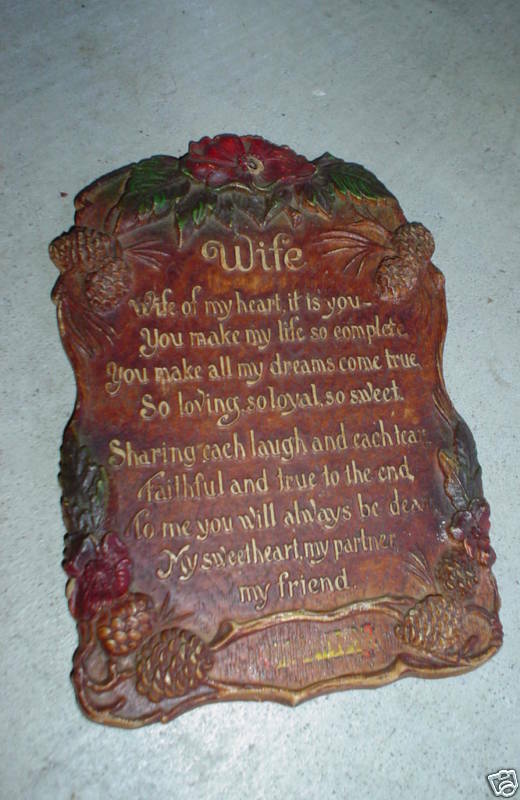 Wife
Wife of my heart, it is you-
You make my life so complete
You make all my dreams come true,
So loving, so loyal, so sweet.
Sharing each laugh and each tear
Faithful and true to the end,
To me you will always be dear
My sweetheart, my partner,
my friend.